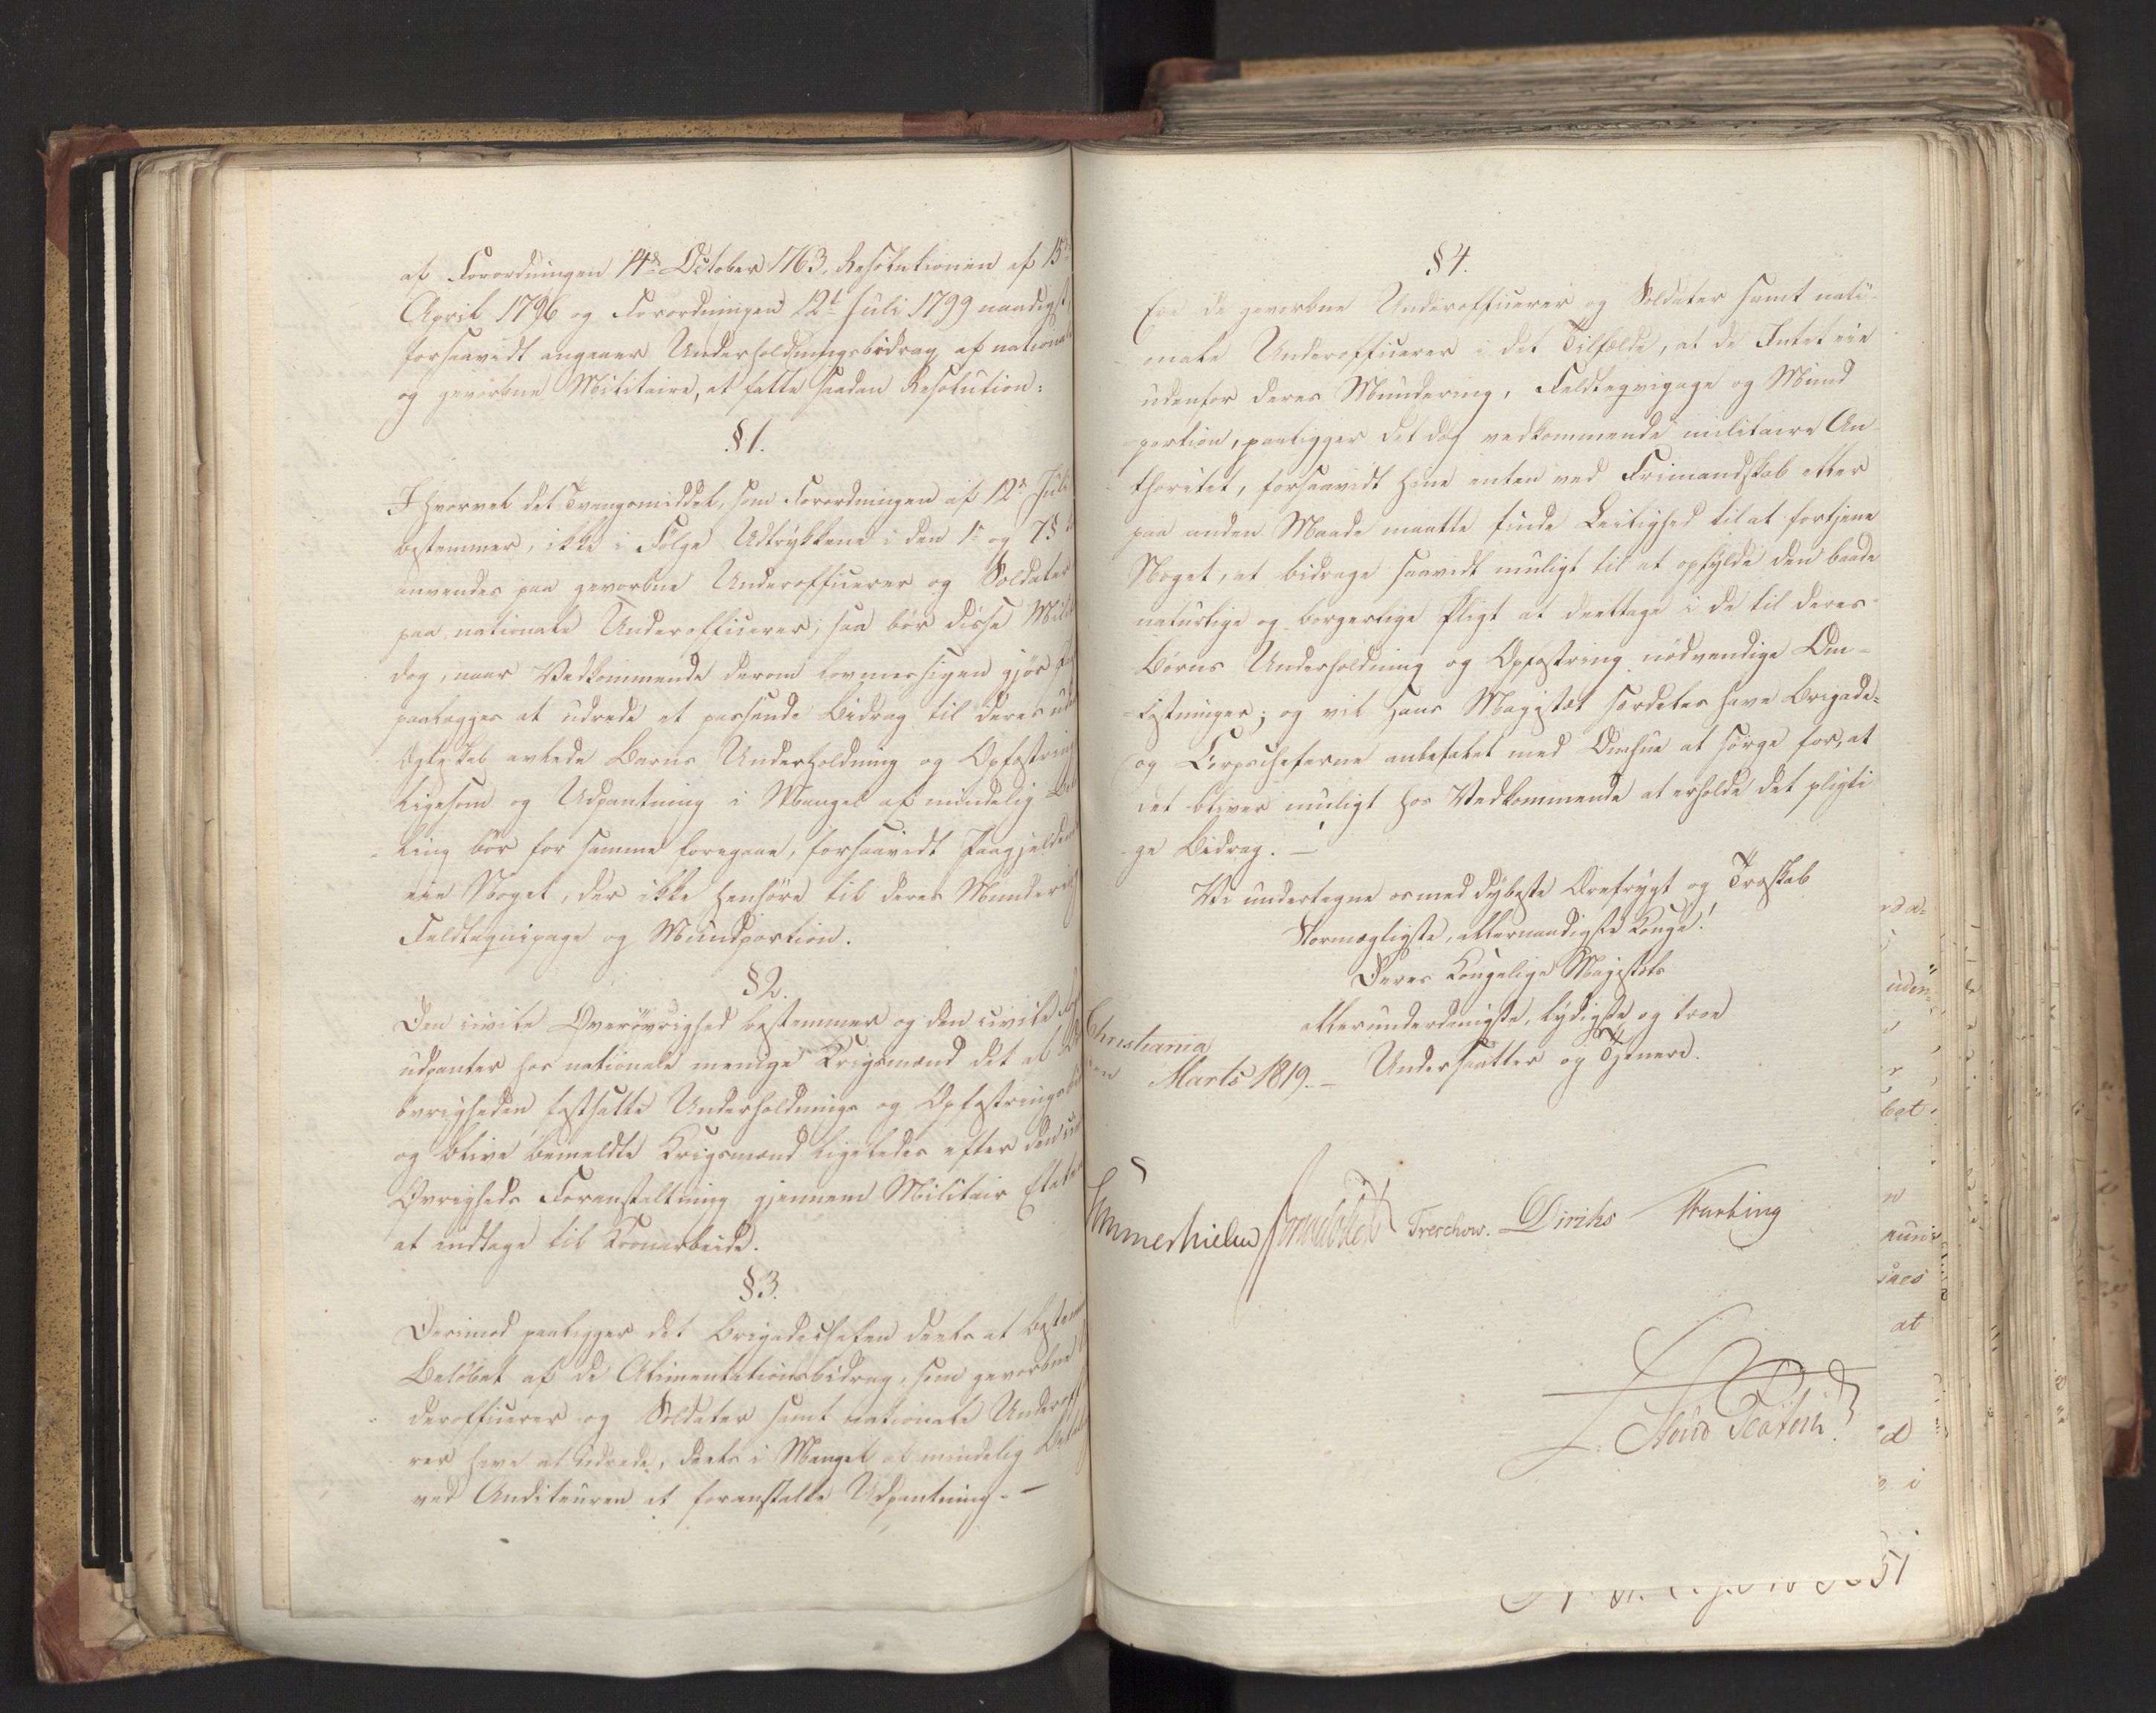 af Forordningen 14de October 1763, Resolutionen af 15de
April 1796 og Forordningen 12te Juli 1799 naadigst,
forsaavidt angaaer Underholdningsbidrag af nationale
og gevorbne Militaire, at fatte saadan Resolution:
§1.
Ihvorvel det Tvangsmiddel, som Forordningen af 12te Juli
bestemmer, ikke i Følge Udtrykkene i den 1e og 7§
anvendes paa gevorbne Underofficerer og Soldater
paa nationale Underofficerer; saa bør disse
dog, naar Vedkommende derom lovmessigen gjør
paalægges at udrede et passende Bidrag til deres
Ægteskab avlede Barns Underholdning og Opfostring
ligesom og Udpantning i Mangel af mindelig
ling bør for samme foregaae, forsaavidt Paagjeldende
eie Noget, der ikke henhøre til deres Mundering
Feldtequipage og Mundportion.
§2.
Den civile Overøvrighed bestemmer og den civile
udpanter hos nationale menige Krigsmænd det af
øvrigheden fastsatte Underholdnings og Opfostrings
og blive bemeldte Krigsmænd ligeledes efter den
Øvrigheds Foranstaltning gjennem Militair Etaten
at indtage til Kronarbeide.
§3.
Derimod paaligger det Brigadechefen deels at bestemme
Beløbet af de Alimentationsbidrag, som gevorbne
derofficerer og Soldater samt nationale Underoffi
rer have at udrede, deels i Mangel af mindelig
ved Auditeuren at foranstalte Udpantning. -
§4.
Ere de gevorbne Underofficerer og Soldater samt nati-
onale Underofficerer i det Tilfælde, at de Intet eie
udenfor deres Mundering, Feldteqvipage og Mund
portion, paaligger det dog vedkommende militaire Au-
thoritet, forsaavidt hine enten ved Frimandskab eller
paa anden Maade maatte finde Leilighed til at fortjene
Noget, at bidrage saavidt muligt til at opfylde den baade
naturlige og borgerlige Pligt at deeltage i de til deres
Børns Underholdning og Opfostring nødvendige Om-
kostninger; og vil Hans Majestæt særdeles have Brigade-
og Corpscheferne anbefalet med Omhue at sørge for, at
det bliver muligt hos Vedkommende at erholde det pligti
ge Bidrag. -
Vi undertegne os med dybeste Ærefrygt og Troskab
Stormægtigste, allernaadigste Konge!
Deres Kongelige Majestæts
allerunderdanigste, lydigste og troe
Undersaatter og Tjenere.
Christiania
den Marts 1819. -
Hummerhielm Sommerfeldt Treschow. Diriks Fasting